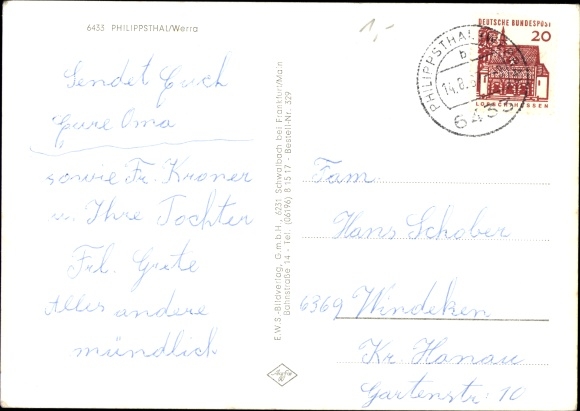 6433 PHILIPPSTHAL/Werra
1,-
Sendet Euch
Eure Oma
sowie Fr. Kroner
u. Ihre Tochter
Frl. Grete
Alles andere
mündlich
E.W.S.-Bildverlag, G.m.b.H., 6231 Schwalbach bei Frankfurt/Main
Bahnstraße 14 - Tel. (06196) 8 15 17 - Bestell-Nr. 529
DEUTSCHE BUNDESPOST
20
LORSCH/HESSEN
PHILIPPSTHAL
b
14.8.
6433
Fam.
Hans Schober
6369 Windecken
Kr. Hanau
Gartenstr. 10